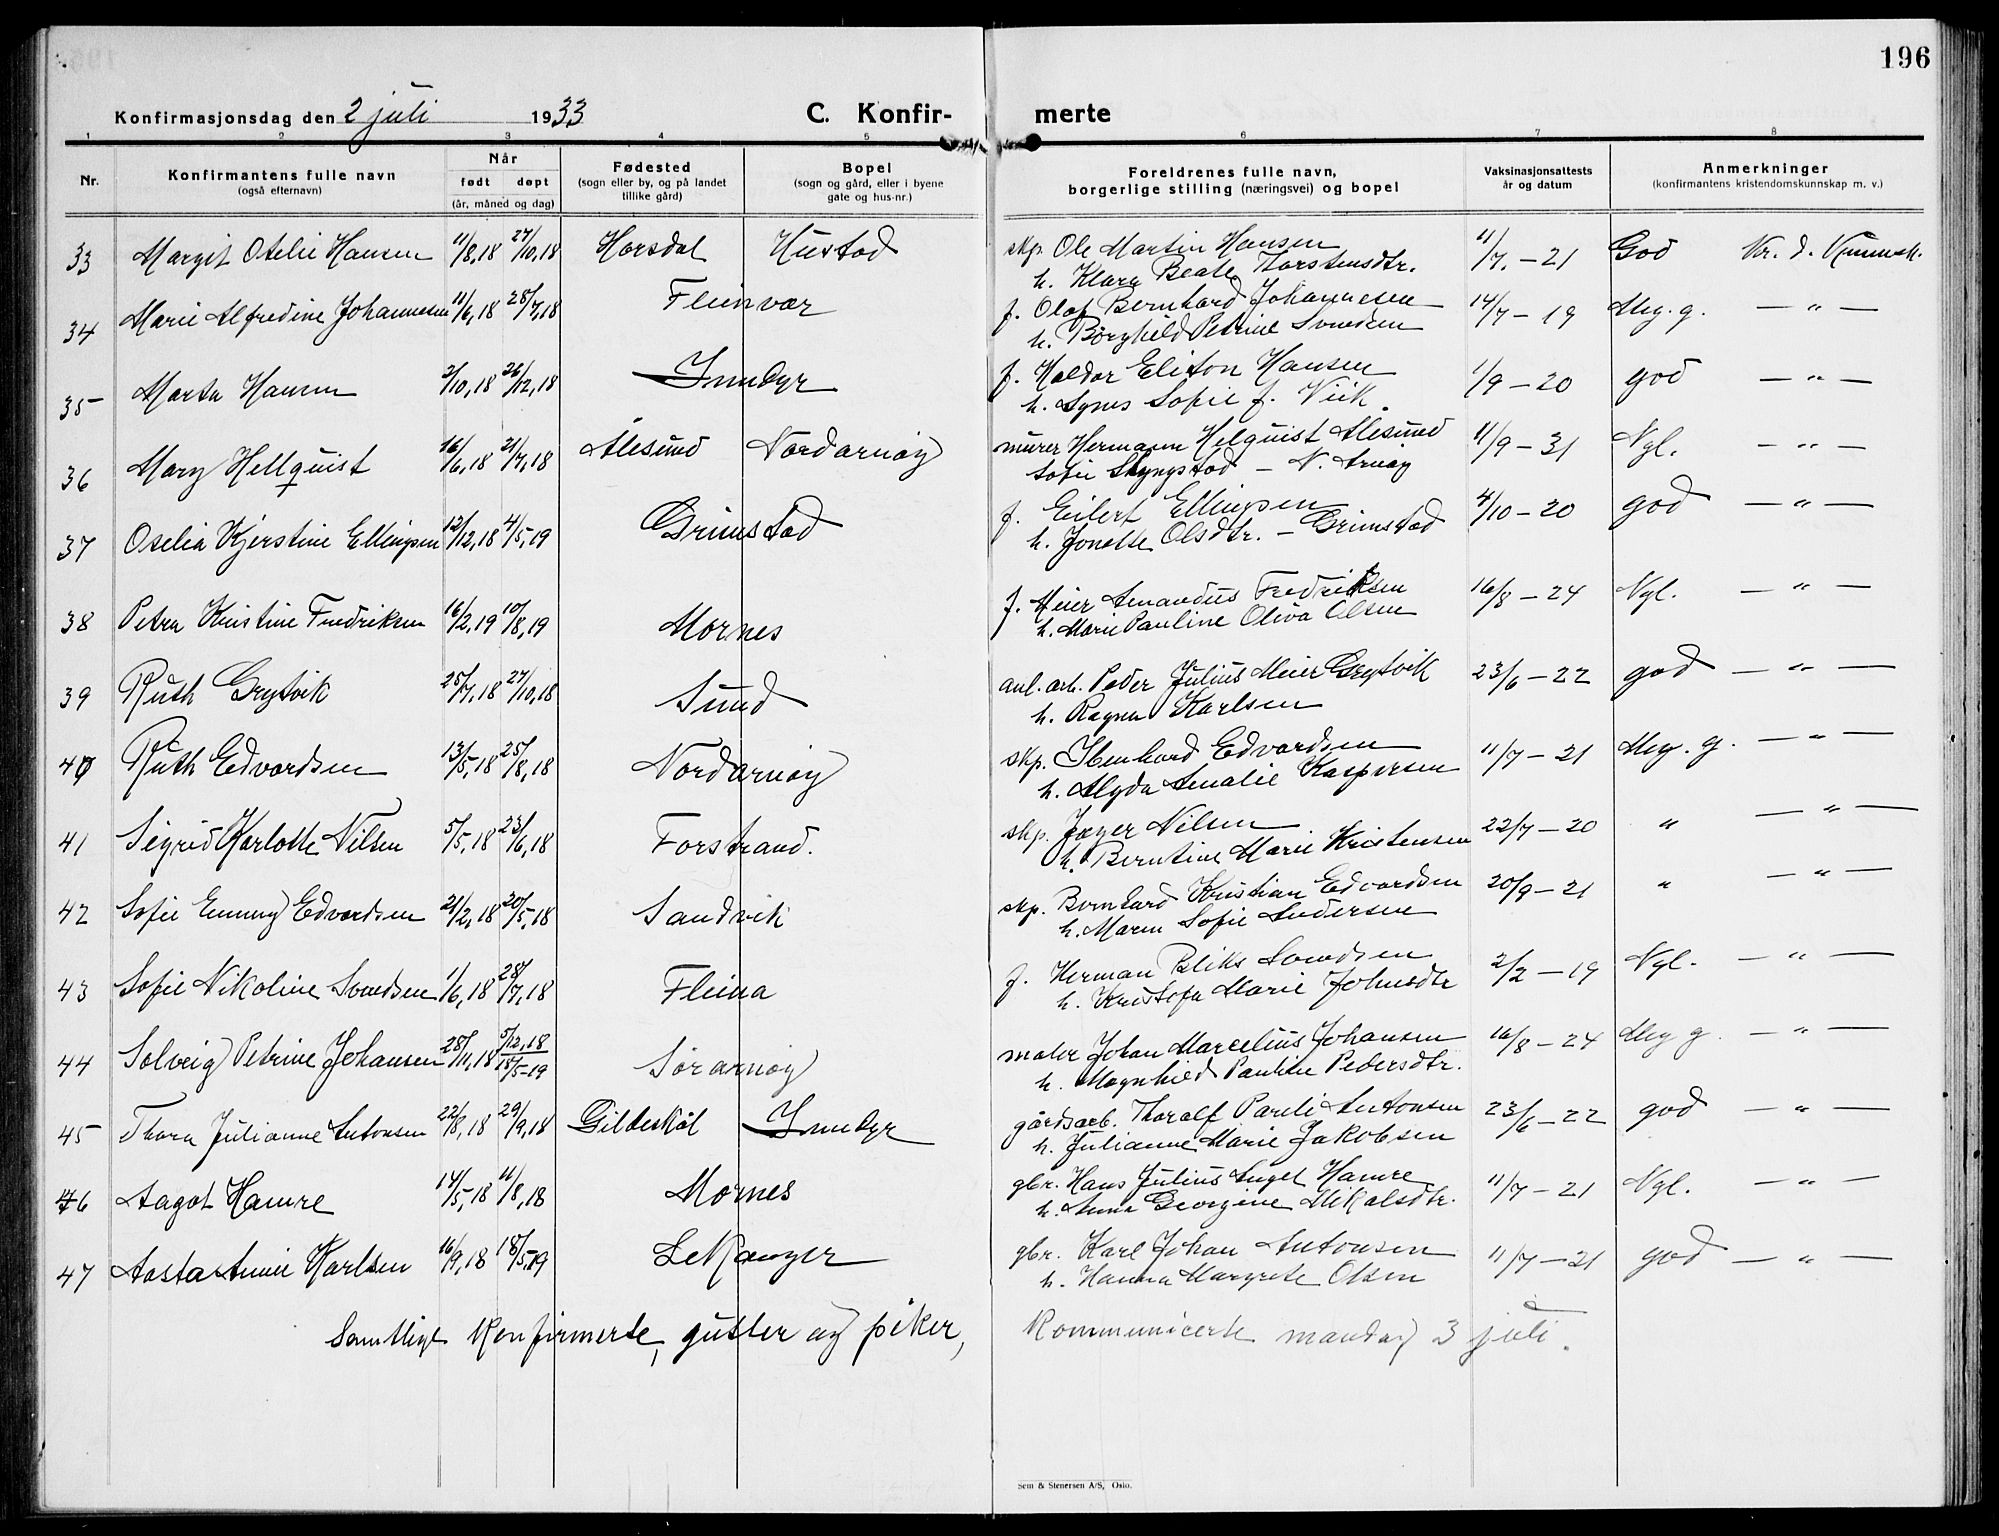 196
Konfirmasjonsdag den 2 juli 1933 C. Konfirmerte
1 2 3 4 5 6 7 8
Nr. Konfirmantens fulle navn (også efternavn) Når født døpt (år, måned og dag) Fødested (sogn eller by, og på landet tillike gård) Bopel (sogn og gård, eller i byene gate og hus-nr.) Foreldrenes fulle navn, borgerlige stilling (næringsvei) og bopel Vaksinasjonsattests år og datum Anmerkninger (konfirmantens kristendomskunnskap m. v.)
33 Margit Otelie Hansen 11/8,18 27/10,18 Horsdal Hustad skp. Ole Martin Hansen 11/7.-21 God Kr. d. Kunnsk.
h. Klara Beate Torstensdtr.
34 Marie Alfredine Johannesen 11/6,18 28/7,18 Fleinvær f. Olaf Bernhard Johannesen 14/7-19 Meg. g. — " —
h. Borghild Petrine Svendsen
35 Marta Hansen 2/10,18 26/12,18 Inndyr f. Haldor Eliton Hansen 1/9-20 god — " —
h. Agnes Sofie f. Viik.
36 Mary Hellquist 16/6,18 21/7,18 Ålesund Nordarnøy murer Hermann Helquist Ålesund 11/9-31 Ngl. — " —
Sofie Skyngstad - N. Arnøy
37 Oselia Kjerstine Ellingsen 12/12,18 4/5,19 Grimstad f. Eilert Ellingsen 4/10-20 god — " —
h. Jonette Olsdtr. - Grimstad
38 Petra Kristine Fredriksen 16/2,19 10/8,19 Mornes f. Meier Amandus Fredriksen 16/8-24 Ngl. — " —
h. Marie Pauline Oliva Olsen
39 Ruth Grytvik 25/7,18 27/10,18 Sund anl. arb. Peder Julius Meier Grytvik 23/6-22 god — " —
h. Ragna Karlsen
40 Ruth Edvardsen 13/5,18 25/8,18 Nordarnøy skp. Ibenhard Edvardsen 11/7-21 Meg. g. — " —
h. Alyda Amalie Kaspersen
41 Sigrid Karlotte Nilsen 5/5,18 23/6,18 Forstrand. skp. Jæger Nilsen 22/7-20 " — " —
h. Berntine Marie Kristensen
42 Sofie Emmy Edvardsen 21/2,18 20/5,18 Sandvik skp. Bernhard Kristian Edvardsen 20/9-21 " — " —
h. Maren Sofie Andersen
43 Sofie Nikoline Svendsen 1/6,18 28/7,18 Fleina f. Herman Bliks Svendsen 2/2-19 Ngl. — " —
h. Kristofa Marie Johnsdtr
44 Solveig Petrine Johansen 28/11,18 5/12,18 18/5-19 Sørarnøy maler Johan Marcelius Johansen 16/8-24 Meg g. — " —
h. Magnhild Pauline Pedersdtr.
45 Thora Julianne Antonsen 22/8,18 29/9,18 Gildeskål Inndyr gårdsarb. Toralf Pareli Antonsen 23/6-22 god — " —
h. Julianne Marie Jakobsen
46 Aagot Hamre 14/5,18 11/8,18 Mornes gbr. Hans Julius Angel Hamre 11/7-21 Ngl. — " —
h. Anna Georgine Mikalsdtr.
47 Aasta Annie Karlsen 16/9,18 18/5,19 Lekanger gbr. Karl Johan Antonsen 11/7-21 god — " —
h. Hanna Margrete Olsen
Samtlige konfirmerte, gutter og piker, kommunicerte mandag 3 juli.
Sem & Stenersen A/S, Oslo.